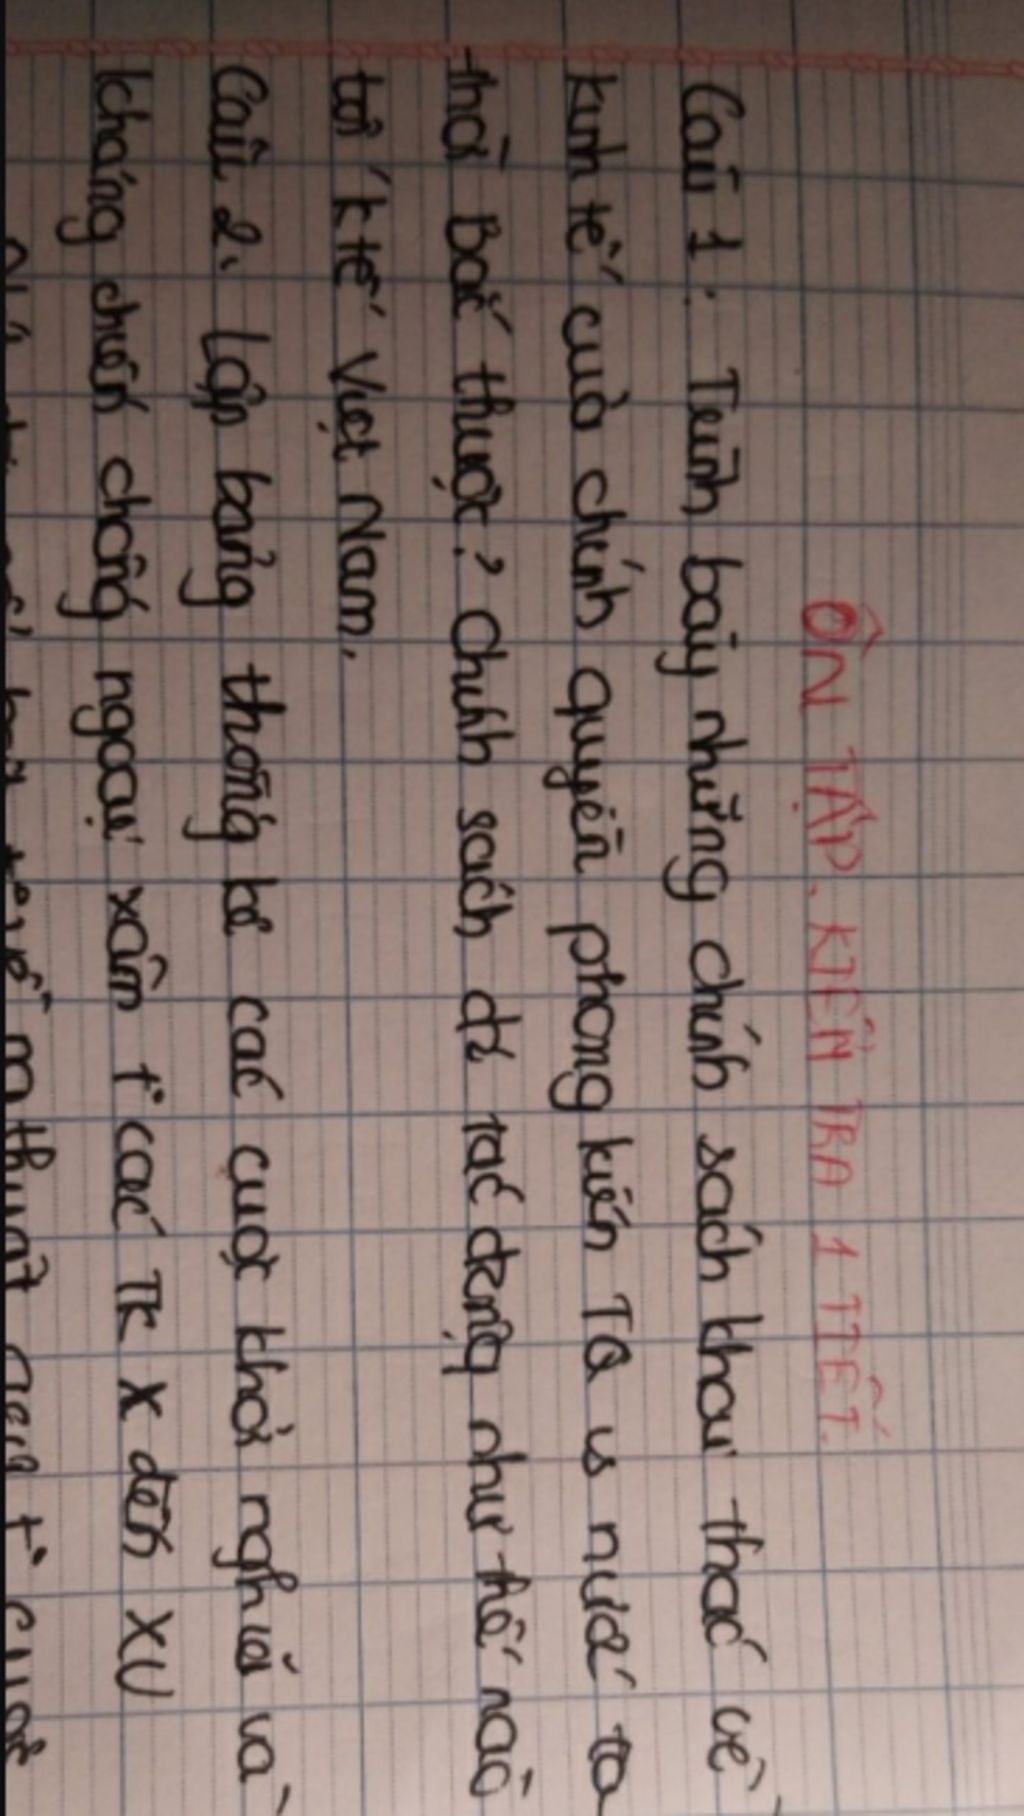 ÔN TẬP. KIỂM TRA 1 TIẾT.
Câu 1: Trình bày những chính sách khai thác về
kinh tế của chính quyền phong kiến TQ vs nước ta
thời Bắc thuộc? Chính sách đó tác động như thế nào
tới k tế Việt Nam.
Câu 2. Lập bảng thống kê các cuộc khởi nghĩa và
kháng chiến chống ngoại xâm t° các TK X đến XV